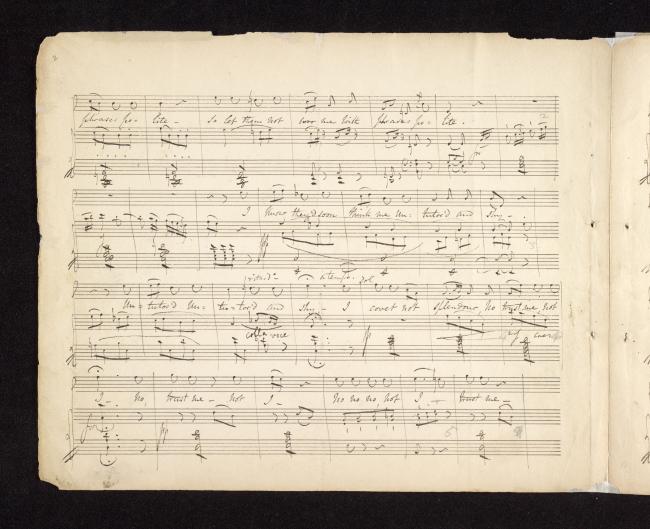 2
phrases po- lite - so let them not woo me with phrases po- lite.
I know they'd soon think me un- tutor'd and shy -
ritard: a tempo.
Un- tutor'd un- tu- tor'd and shy - I covet not splendour, No trust me, not
colla voce
fp
I - No, trust me - not I - No no no, not I - trust me -
fp